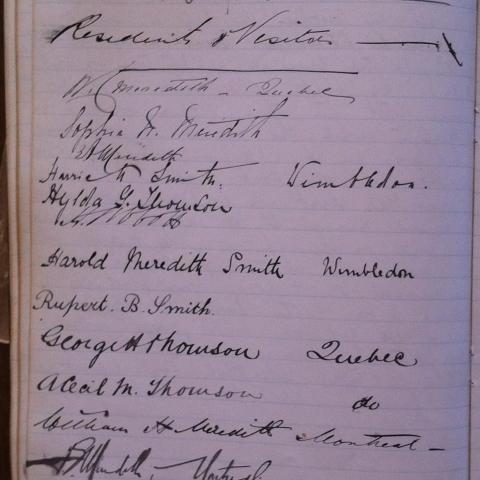 Residents & Visitors
W. Meredith - Quebec
Sophia N. Meredith
Meredith
Harriet Smith. Wimbledon.
Hylda G. Thomson
Harold Meredith Smith Wimbledon
Rupert. B. Smith.
George H Thomson Quebec
A Cecil M. Thomson do
William H Meredith Montreal -
Meredith, Montreal